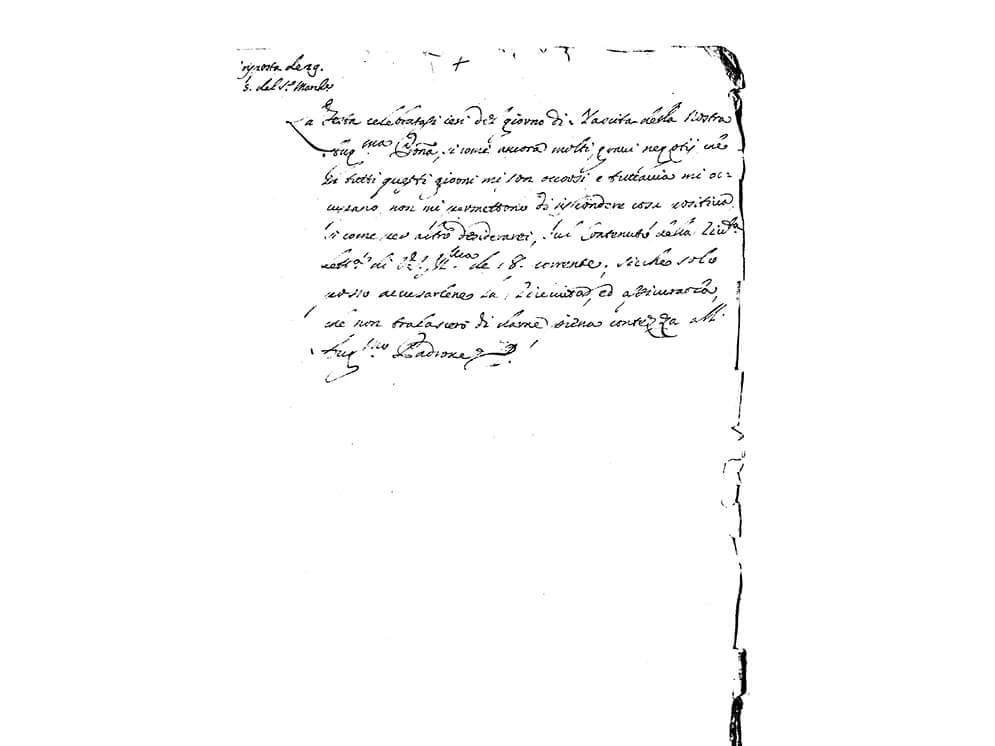 risposta de 29.
S. del S.r Marchs
+
La festa celebratasi ieri del giorno di Nascita della Nostra
Aug.ma Pñna, si come ancora molti, gravi negotij che
in tutti questi giorni mi son occorsi e tuttavia mi oc-
cupano non mi permettono di rispondere cosa positiva
si come per altro desiderarei, sul contenuto della
lett.a di V.S. Ill.ma de 18. corrente, sicche solo
posso accusarlene la ricevuta, ed assicurarla,
che non tralascerò di darne piena contezza all'
Aug.mo Padrone